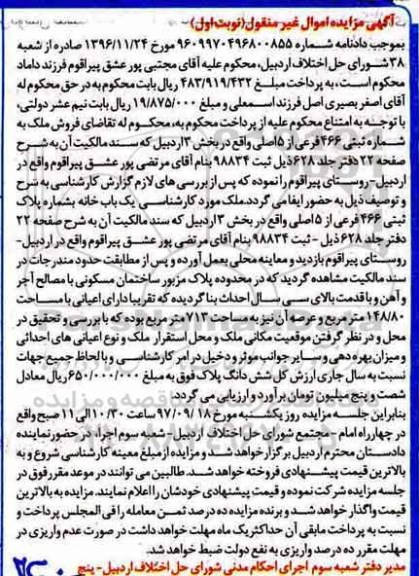 آگهی مزایده اموال غیر منقول(نوبت اول)
بموجب دادنامه شماره ۹۶۰۹۹۷۰۴۹۶۸۰۰۸۵۵ مورخ ۱۳۹۶/۱۱/۲۴ صادره از شعبه
۳۸شورای حل اختلاف اردبیل، محکوم علیه آقای مجتبی پور عشق پیراقوم فرزند داماد
محکوم است، به پرداخت مبلغ ۴۸۳/۹۱۹/۴۳۲ ریال بابت محکوم به در حق محکوم له
آقای اصغر بصیری اصل فرزند اسمعلی و مبلغ ۱۹/۸۷۵/۰۰۰ ریال بابت نیم عشر دولتی،
با توجه به امتناع محکوم علیه از پرداخت محکوم به، محکوم له تقاضای فروش ملک به
شماره ثبتی ۴۶۶ فرعی از ۵اصلی واقع در بخش ۳اردبیل که سند مالکیت آن به شرح
صفحه ۲۲ دفتر جلد ۶۲۸ ذیل ثبت ۹۸۸۳۴ بنام آقای مرتضی پور عشق پیراقوم واقع در
اردبیل-روستای پیراقوم را نموده که پس از بررسی های لازم گزارش کارشناسی به شرح
و توصیف ذیل به حضور ایفا می گردد. ملک مورد کارشناسی یک باب خانه بشماره پلاک
ثبتی ۴۶۶ فرعی از ۵اصلی واقع در بخش ۳اردبیل که سند مالکیت آن به شرح صفحه ۲۲
دفتر جلد ۶۲۸ ذیل - ثبت ۹۸۸۳۴ بنام آقای مرتضی پور عشق پیراقوم واقع در اردبیل-
روستای پیراقوم بازدید و معاینه محلی بعمل آورده و پس از مطابقت حدود مندرجات در
سند مالکیت مشاهده گردید که در محدوده پلاک مزبور ساختمان مسکونی با مصالح آجر
و آهن و با قدمت بالای سی سال احداث بنا گردیده که تقریبا دارای اعیانی با مساحت
۱۴۸/۸۰ متر مربع و عرصه آن نیز به مساحت ۷۱۳ متر مربع بوده که با بررسی و تحقیق در
محل و در نظر گرفتن موقعیت مکانی ملک و محل استقرار ملک و نوع اعیانی های احداثی
و میزان بهره دهی و سایر جوانب موثر و دخیل در امر کارشناسی و با لحاظ جمیع جهات
نسبت به سال جاری ارزش کل شش دانگ پلاک فوق به مبلغ ۶۵۰/۰۰۰/۰۰۰ ریال معادل
شصت و پنج میلیون تومان برآورد و ارزیابی می گردد.
بنابراین جلسه مزایده روز یکشنبه مورخ ۹۷/۰۹/۱۸ ساعت ۱۰/۳۰ الی ۱۱ صبح واقع
در چهارراه امام -مجتمع شورای حل اختلاف اردبیل- شعبه سوم اجرا در حضور نماینده
دادستان محترم اردبیل برگزار خواهد شد و مزایده از مبلغ معینه کارشناسی شروع و به
بالاترین قیمت پیشنهادی فروخته خواهد شد. طالبین می توانند در موعد مقرر فوق در
جلسه مزایده شرکت نموده و قیمت پیشنهادی خودشان را اعلام نمایند. مزایده به بالاترین
قیمت واگذار خواهد شد و برنده مزایده ده درصد ثمن معامله را فی المجلس پرداخت و
نسبت به پرداخت مابقی آن حداکثر یک ماه مهلت خواهد داشت در صورت عدم واریزی در
مهلت مقرر ده درصد واریزی به نفع دولت ضبط خواهد شد.
مدیر دفتر شعبه سوم اجرای احکام مدنی شورای حل اختلاف اردبیل - پنج